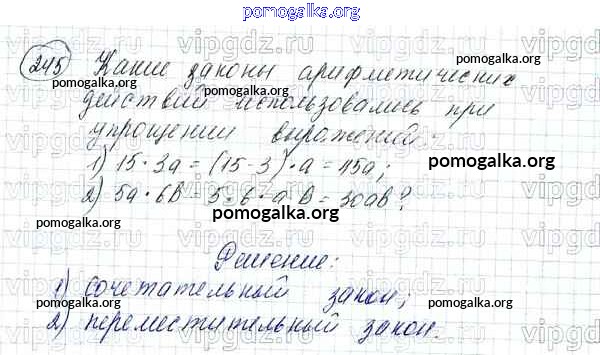 pomogalka.org
245 Какие законы арифметических
pomogalka.org pomogalka.org
действий использовались при
упрощении выражений:
1) 15·3a = (15·3)·a = 45a;
pomogalka.org
2) 5a·6b = 5·6·ab = 30ab?
pomogalka.org
Решение:
pomogalka.org
1) сочетательный закон;
pomogalka.org
2) переместительный закон.
pomogalka.org
vipgdz.ru